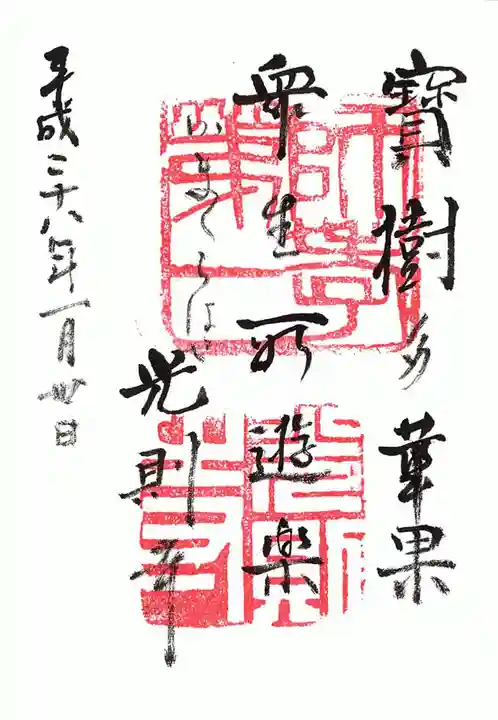 寳樹多華果
衆生所遊楽
かまくらはせ
光則寺
平成二十八年一月廿日